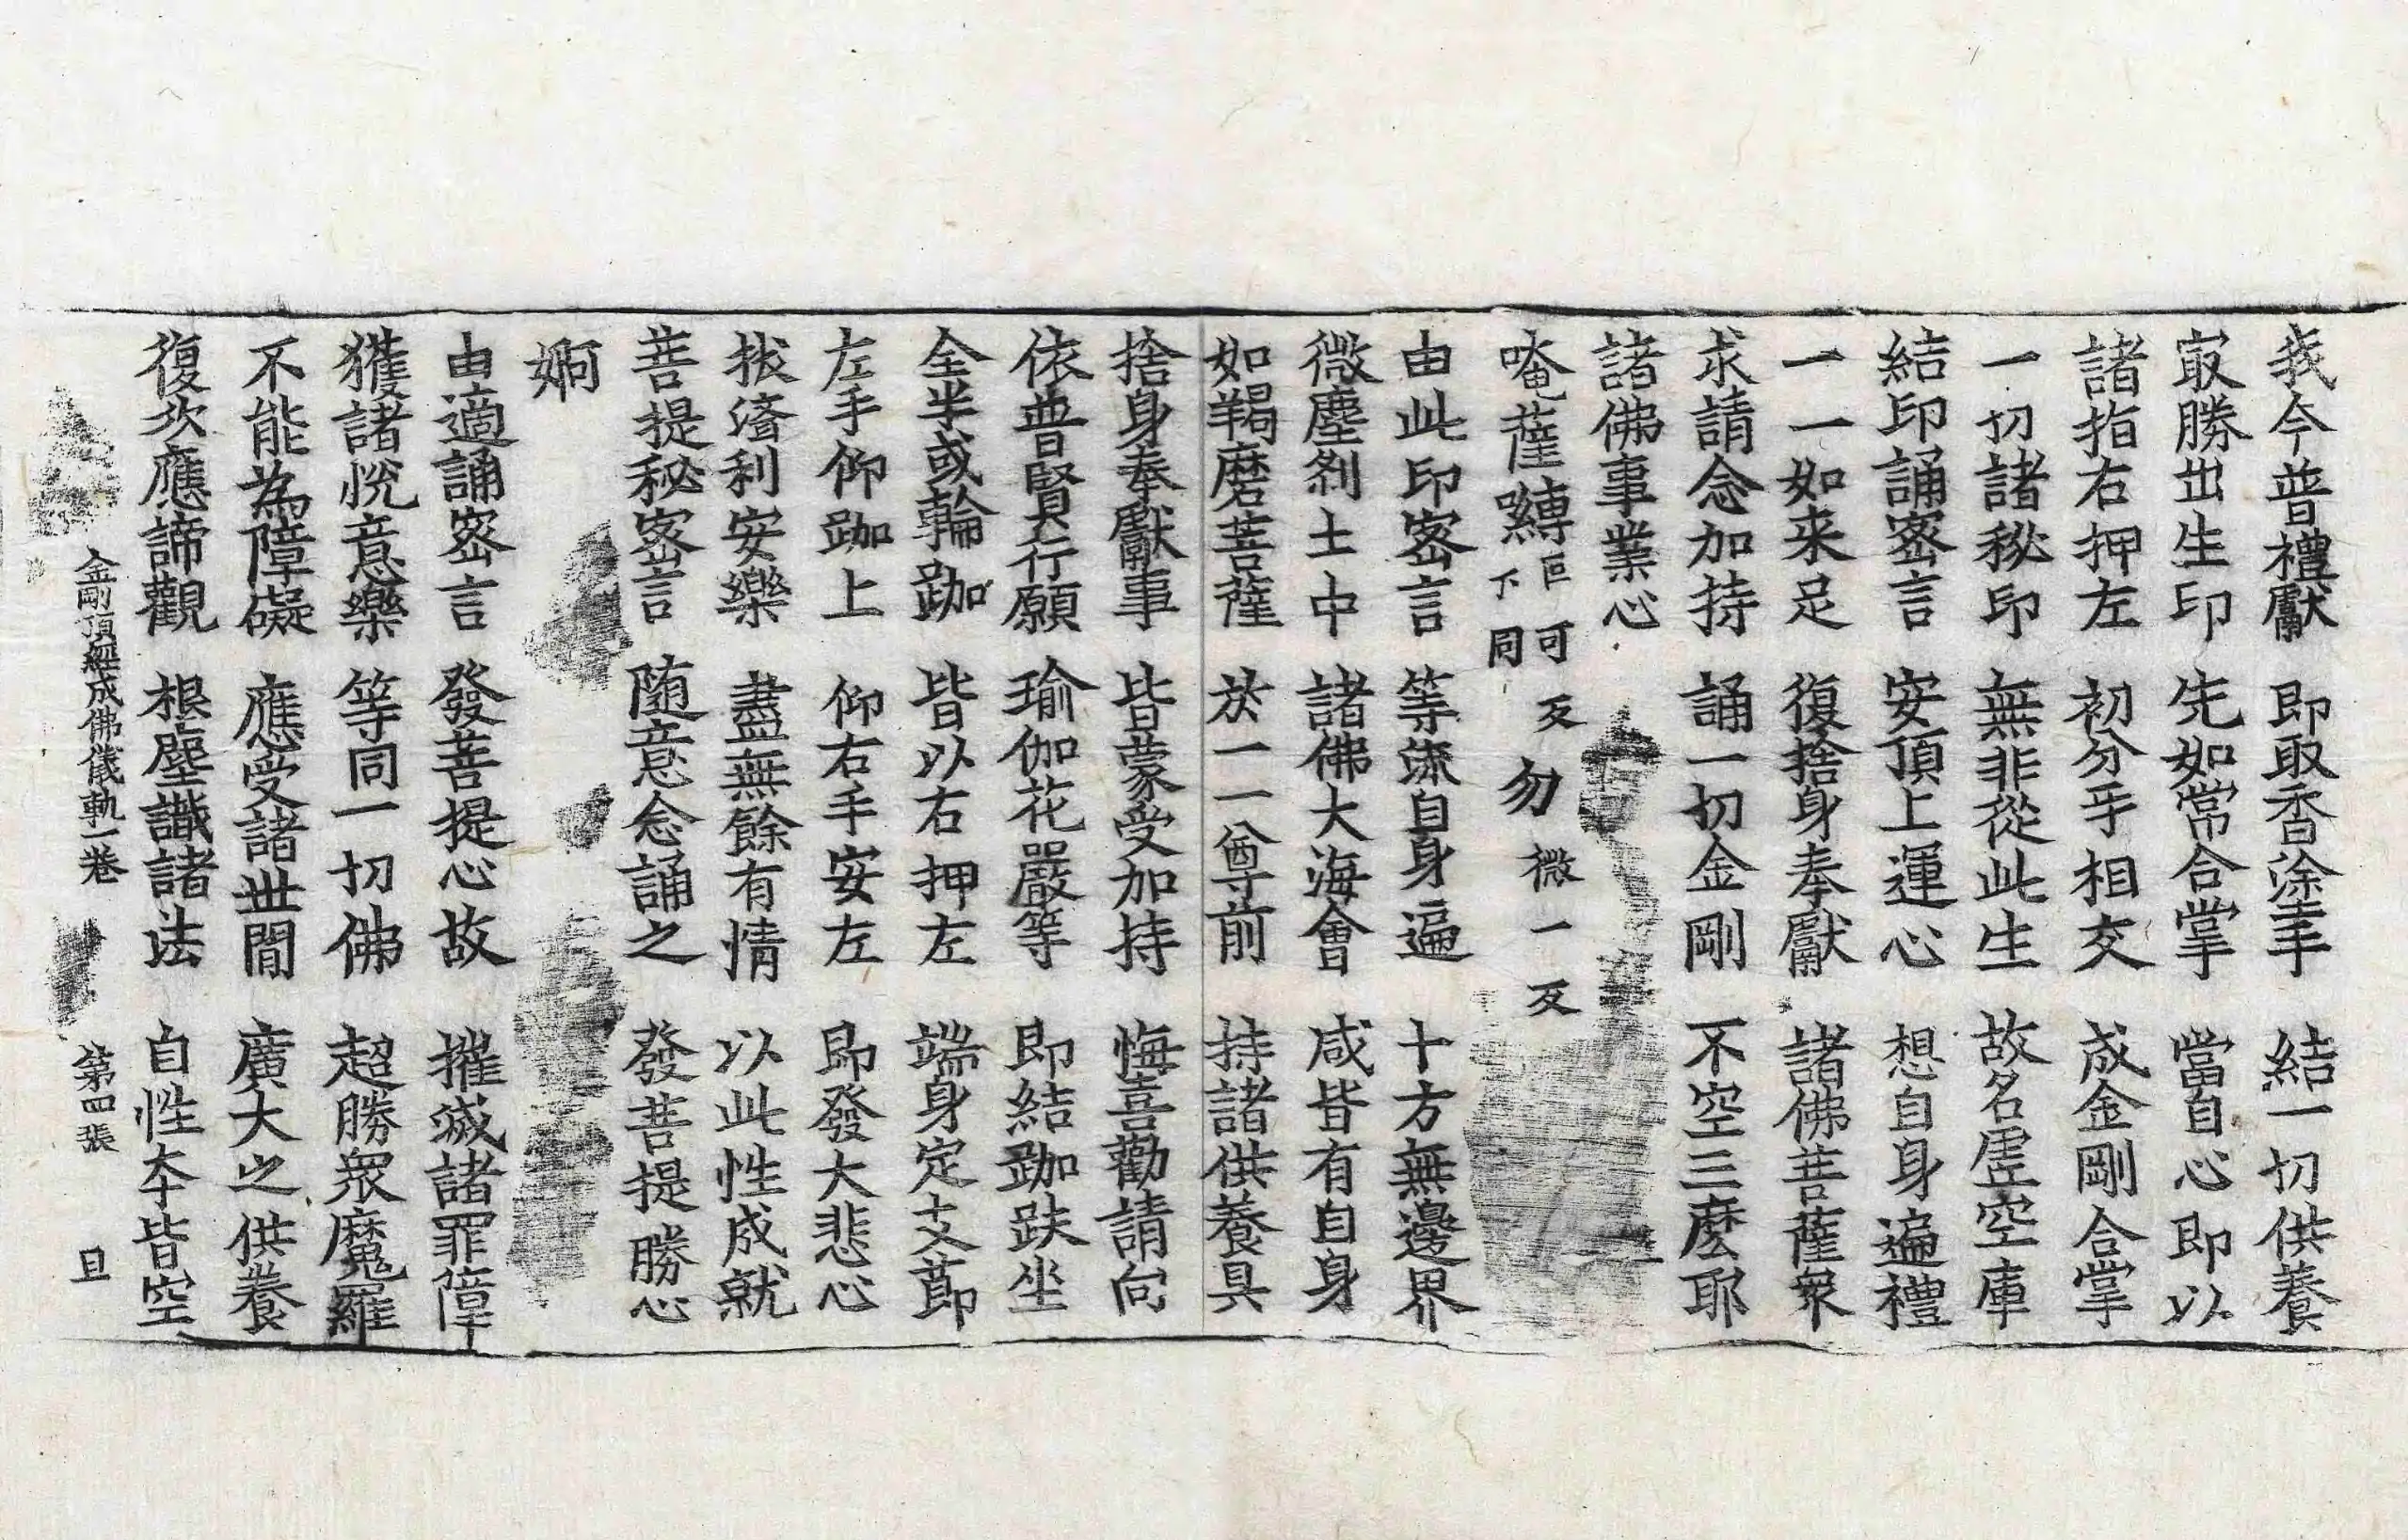 我今普禮獻　即取香塗手　結一切供養
㝡勝出生印　先如常合掌　當自心即以
諸指右押左　初分手相交　成金剛合掌
一切諸秘印　無非從此生　故名虛空庫
結印誦密言　安頂上運心　想自身遍禮
一一如来足　復捨身奉獻　諸佛菩薩衆
求請念加持　誦一切金剛　不空三麽耶
諸佛事業心
唵薩嚩無可反下同勿微一反
由此印密言　等流自身遍　十方無邊界
微塵刹土中　諸佛大海會　咸皆有自身
如羯磨菩薩　於一一尊前　持諸供養具
捨身奉獻事　皆蒙受加持　悔喜勸請向
依普賢行願　瑜伽花嚴等　即結跏趺坐
全半或輪跏　皆以右押左　端身定支節
左手仰跏上　仰右手安左　即發大悲心
拔濟利安樂　盡無餘有情　以此性成就
菩提秘密言　随意念誦之　發菩提勝心
婀
由適誦密言　發菩提心故　摧滅諸罪障
獲諸悅意樂　等同一切佛　超勝衆魔羅
不能為障礙　應受諸世間　廣大之供養
復次應諦觀　根塵識諸法　自性本皆空
金剛頂經成佛儀軌一卷　第四張　旦